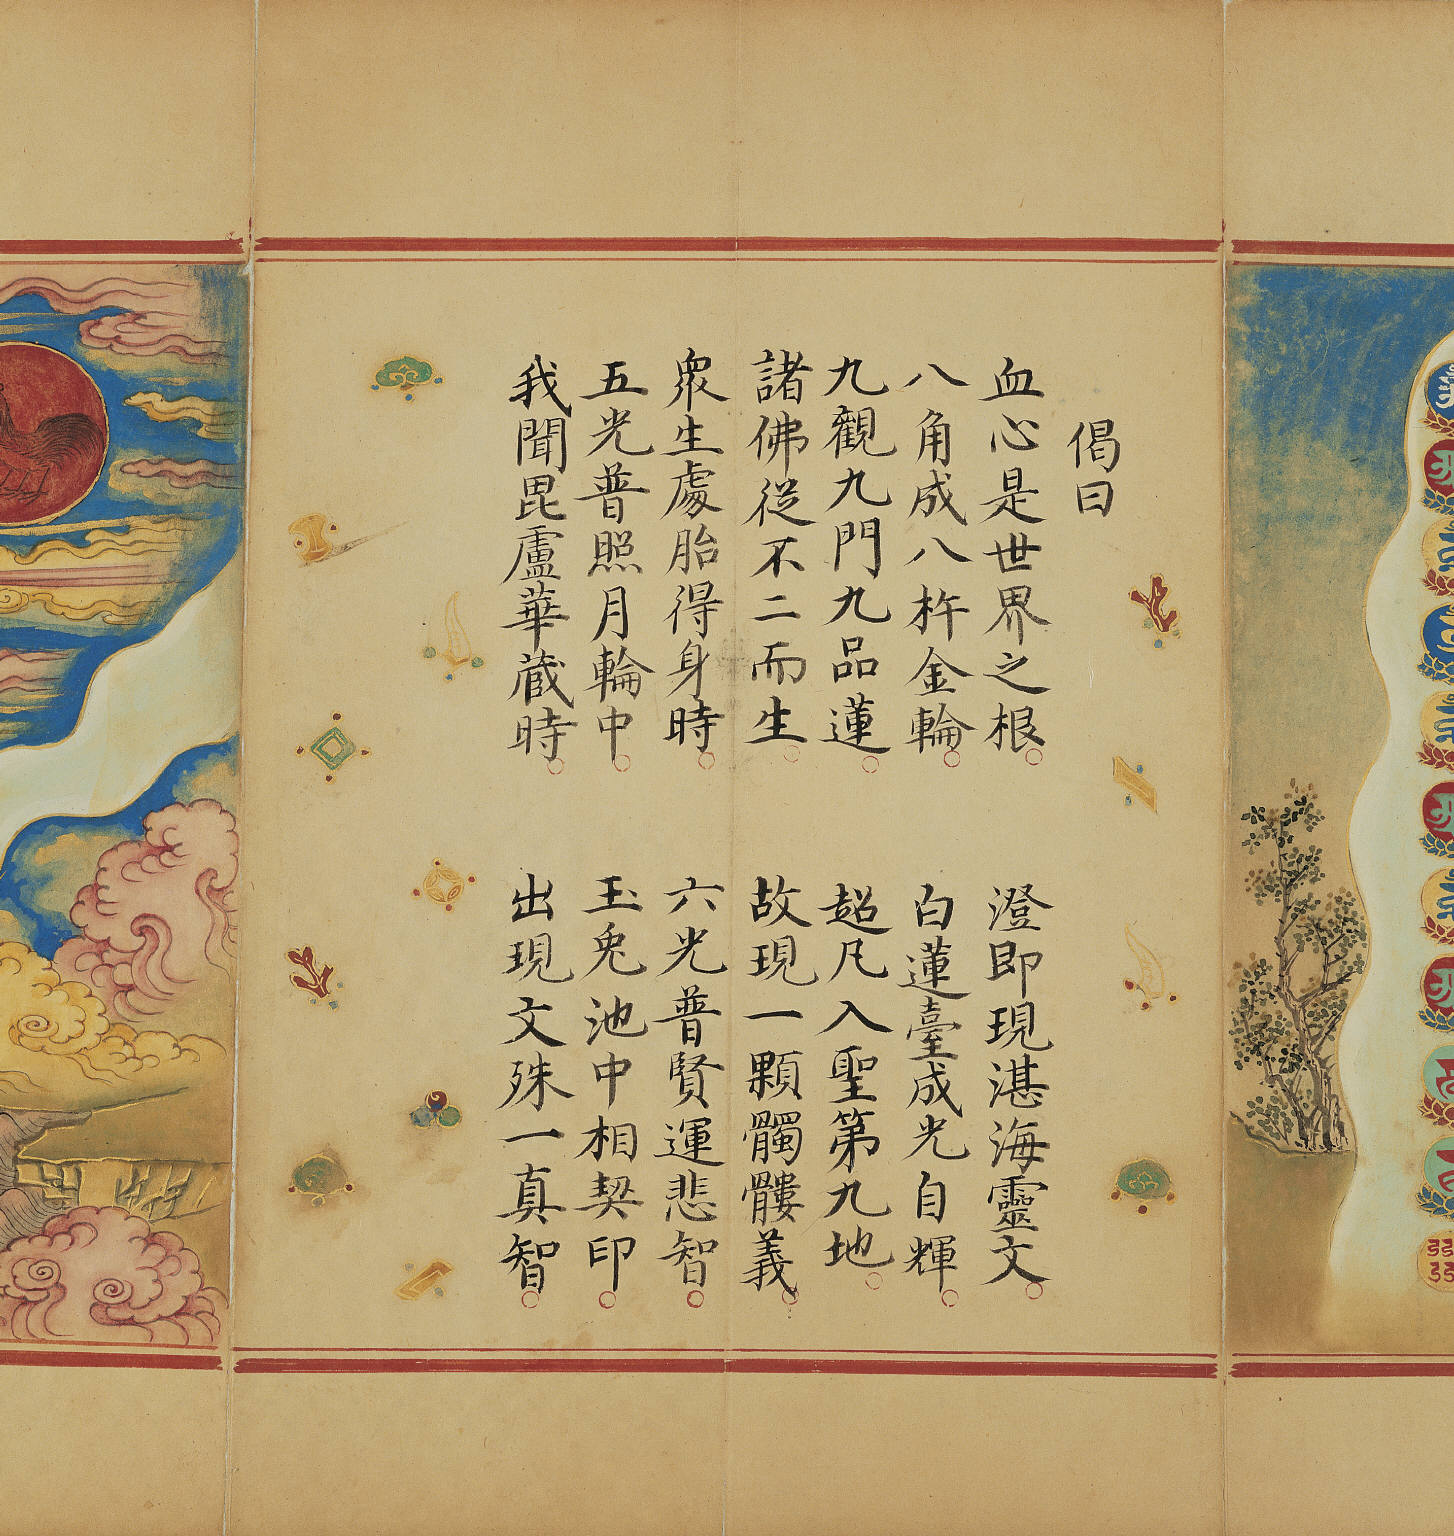 偈曰
血心是世界之根 澄即現湛海靈文
八角成八杵金輪 白蓮臺成光自輝
九觀九門九品蓮 超凡入聖第九地
諸佛從不二而生 故現一顆髑髏義
衆生處胎得身時 六光普賢運悲智
五光普照月輪中 玉兎池中相契印
我聞毘盧華蔵時 出現文殊一真智